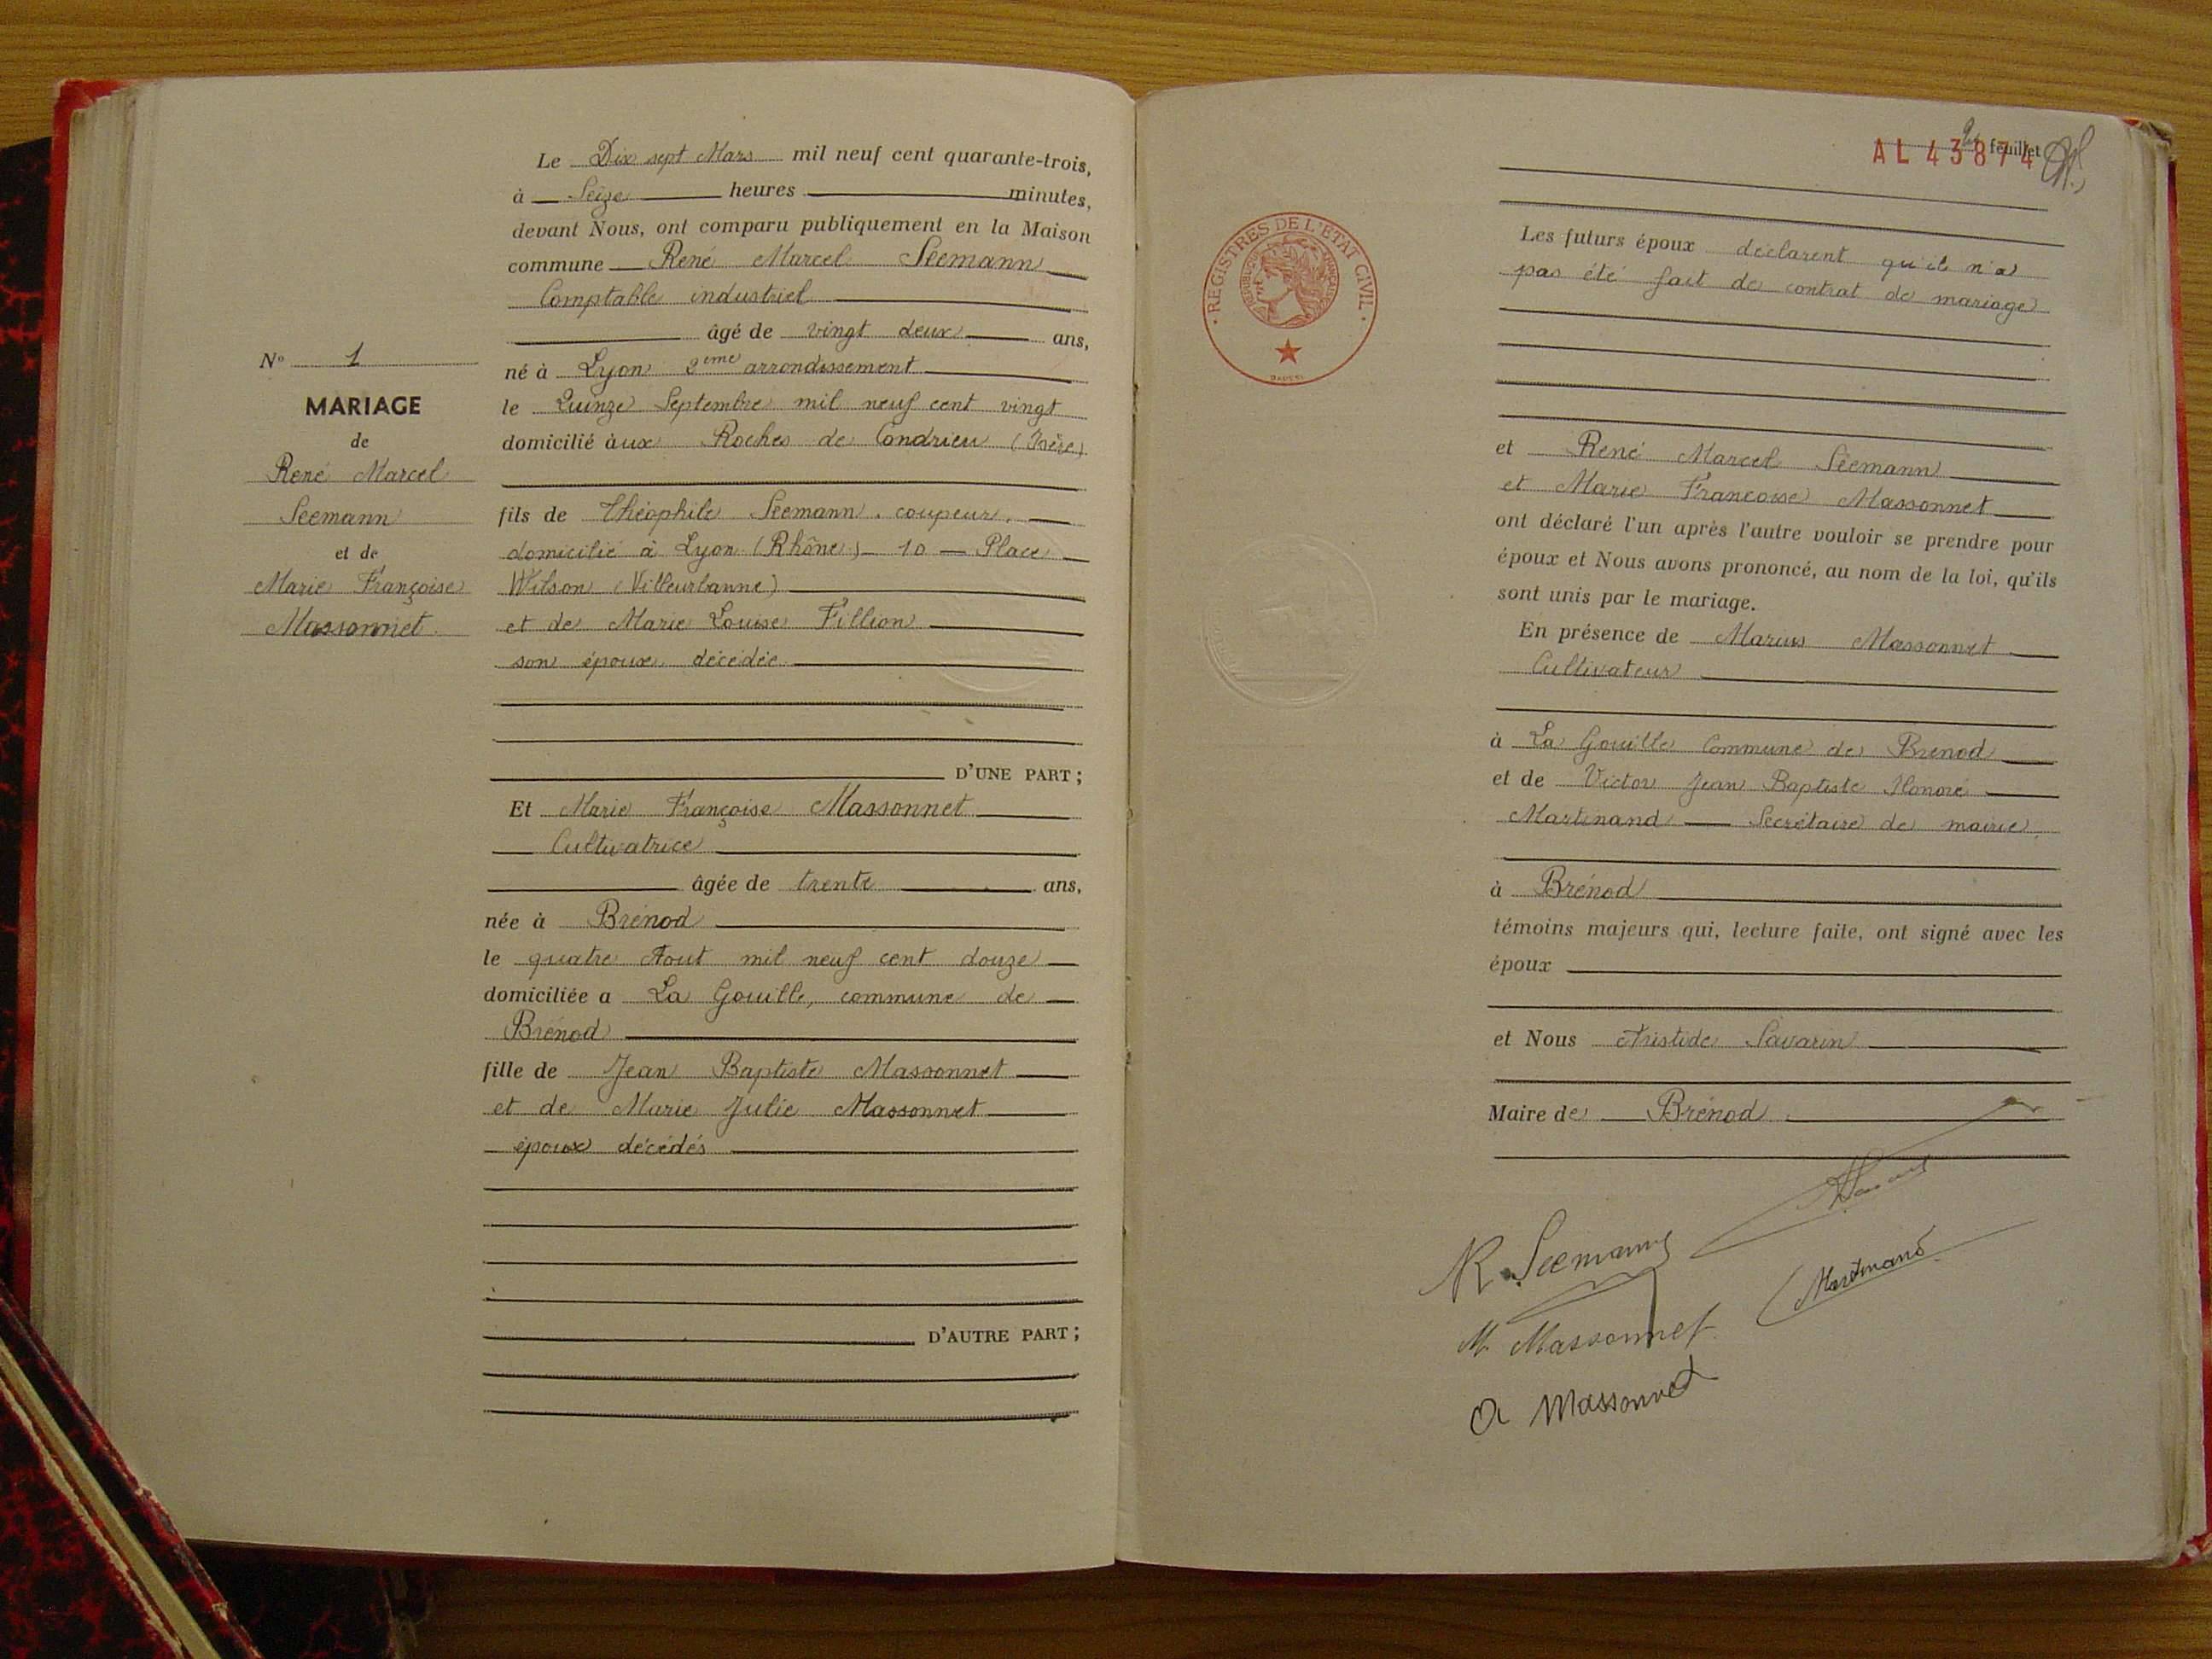 Le Dix sept Mars mil neuf cent quarante-trois,
à Seize heures minutes,
devant Nous, ont comparu publiquement en la Maison
commune René Marcel Seemann
Comptable industriel
âgé de vingt deux ans,
né à Lyon 2ème arrondissement
le Quinze Septembre mil neuf cent vingt
domicilié àux Roches de Condrieu (Isère)
fils de Théophile Seemann. coupeur.
domicilié à Lyon (Rhône) – 10 – Place
Wilson (Villeurbanne)
et de Marie Louise Fillion
son épouse décédée
D'UNE PART ;
Et Marie Françoise Massonnet
Cultivatrice
âgée de trente ans,
née à Brénod
le quatre Aout mil neuf cent douze
domiciliée a La Gouille, commune de
Brénod
fille de Jean Baptiste Massonnet
et de Marie Julie Massonnet
époux décédés
D'AUTRE PART ;
N° 1
MARIAGE
de
René Marcel
Seemann
et de
Marie Françoise
Massonnet.
AL 43874
feuillet
REGISTRES DE L'ÉTAT CIVIL
Les futurs époux déclarent qu'il n'a
pas été fait de contrat de mariage
et René Marcel Seemann
et Marie Françoise Massonnet
ont déclaré l'un après l'autre vouloir se prendre pour
époux et Nous avons prononcé, au nom de la loi, qu'ils
sont unis par le mariage.
En présence de Marius Massonnet
Cultivateur
à La Gouille Commune de Brénod
et de Victor Jean Baptiste Honoré
Martinand — Secrétaire de mairie
à Brénod
témoins majeurs qui, lecture faite, ont signé avec les
époux
et Nous Aristide Savarin
Maire de Brénod
R. Seemann
Martinand
M. Massonnet
Massonnet